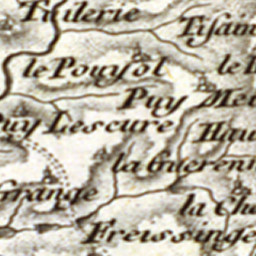 Tuilerie
Tisain
le Pouyol
le
Puy Mei
Puy Lescure
Hau
la Guerenn
Grange
la Cha
Freissinge